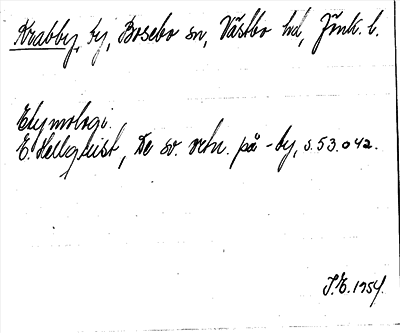 Krabby, by, Bosebo sn, Västbo hd, Jönk. l.
Etymologi.
E. Hellquist, De sv. ortn. på -by, s. 53. o 42.
J.E. 1954.